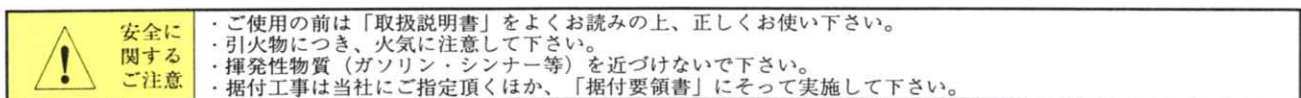 安全に
関する
ご注意
・ご使用の前は「取扱説明書」をよくお読みの上、正しくお使い下さい。
・引火物につき、火気に注意して下さい。
・揮発性物質（ガソリン・シンナー等）を近づけないで下さい。
・据付工事は当社にご指定頂くほか、「据付要領書」にそって実施して下さい。